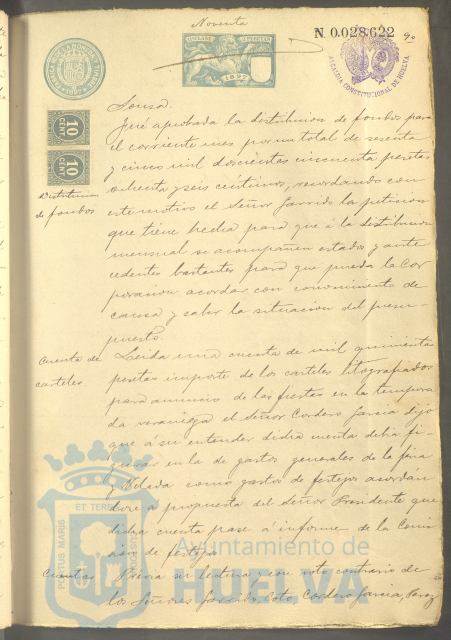 Noventa
N. 0.028.622
90
1897
ALCALDIA CONSTITUCIONAL DE HUELVA
10
CENT
10
CENT
Sousa.
Fué aprobada la distribucion de fondos para
el corriente mes por un total de sesenta
y cinco mil doscientas cincuenta pesetas
ochenta y seis centimos, recordando con
Distribucion
este motivo el Señor Garrido la peticion
de fondos
que tiene hecha para que á la distribucion
mensual se acompañen estados y ante
cedentes bastantes para que pueda la Cor
poracion acordar con conocimiento de
causa y saber la situacion del presu-
puesto.
Cuenta de
carteles
Leida una cuenta de mil quinientas
pesetas importe de los carteles litografiados
para anuncio de las fiestas en la tempora
da veraniega el Señor Cordero Garcia dijo
que á su entender dicha cuenta debia fi-
gurar en la de gastos generales de la feria
y Velada como gastos de festejos acordan
dose á propuesta del Señor Presidente que
dicha cuenta pase á informe de la Comi
sion de festejos.
Cuentas
Previa su lectura y con voto contrario de
los Señores Garrido, Coto, Cordero Garcia, Perez
PORTUS MARIS ET TERRE CUSTODIA
Ayuntamiento de
HUELVA